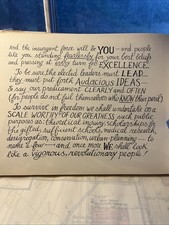 and the insurgent force will be YOU—and people
like you standing fearlessly for your best beliefs
and pressing at every turn for EXCELLENCE.
To be sure the elected leaders must LEAD—
they must put forth Audacious IDEAS—
& say our predicament CLEARLY and OFTEN
(for people do not fail themselves who KNOW their peril)
To survive in freedom we shall undertake on a
SCALE WORTHY OF OUR GREATNESS such public
purposes as: theoretical inquiry, scholarships for
the gifted, sufficient schools, medical research,
desegregation, conservation, urban planning— to
name a few—and once more WE shall look
like a vigorous, revolutionary people.